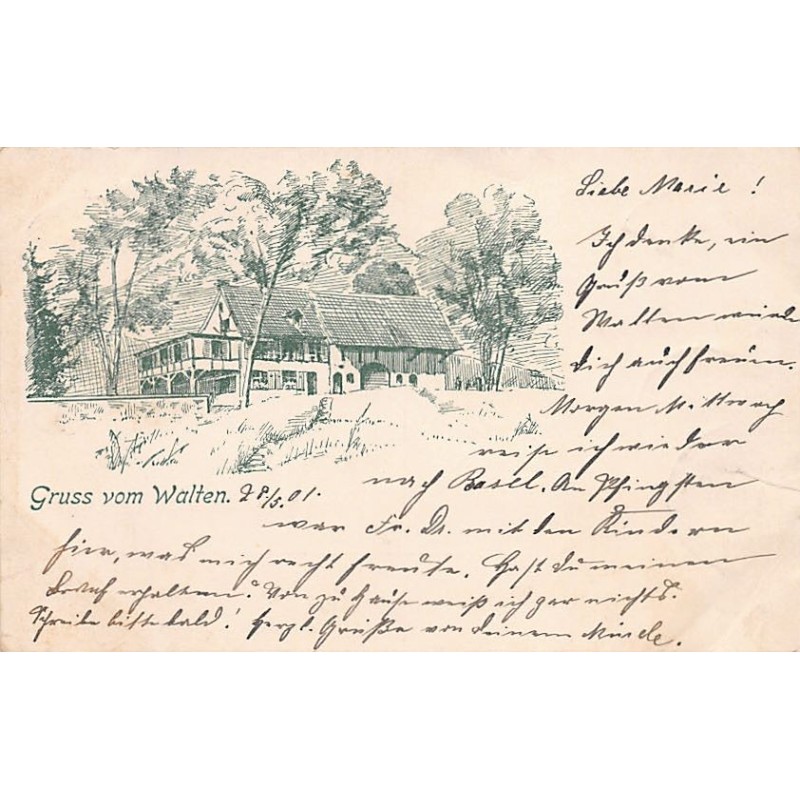 Liebe Marie !
Ich denke, ein
Gruß vom
Walten würde
dich auch freuen.
Morgen Mittwoch
reise ich wieder
nach Basel. An Pfingsten
Gruss vom Walten. 28/5.01.
war Fr. Dr. mit den Kindern
hier, was mich recht freute. Hast du meinen
Brief erhalten? Von zu Hause weiß ich gar nichts.
Schreibe bitte bald! Herzl. Grüße von deinem